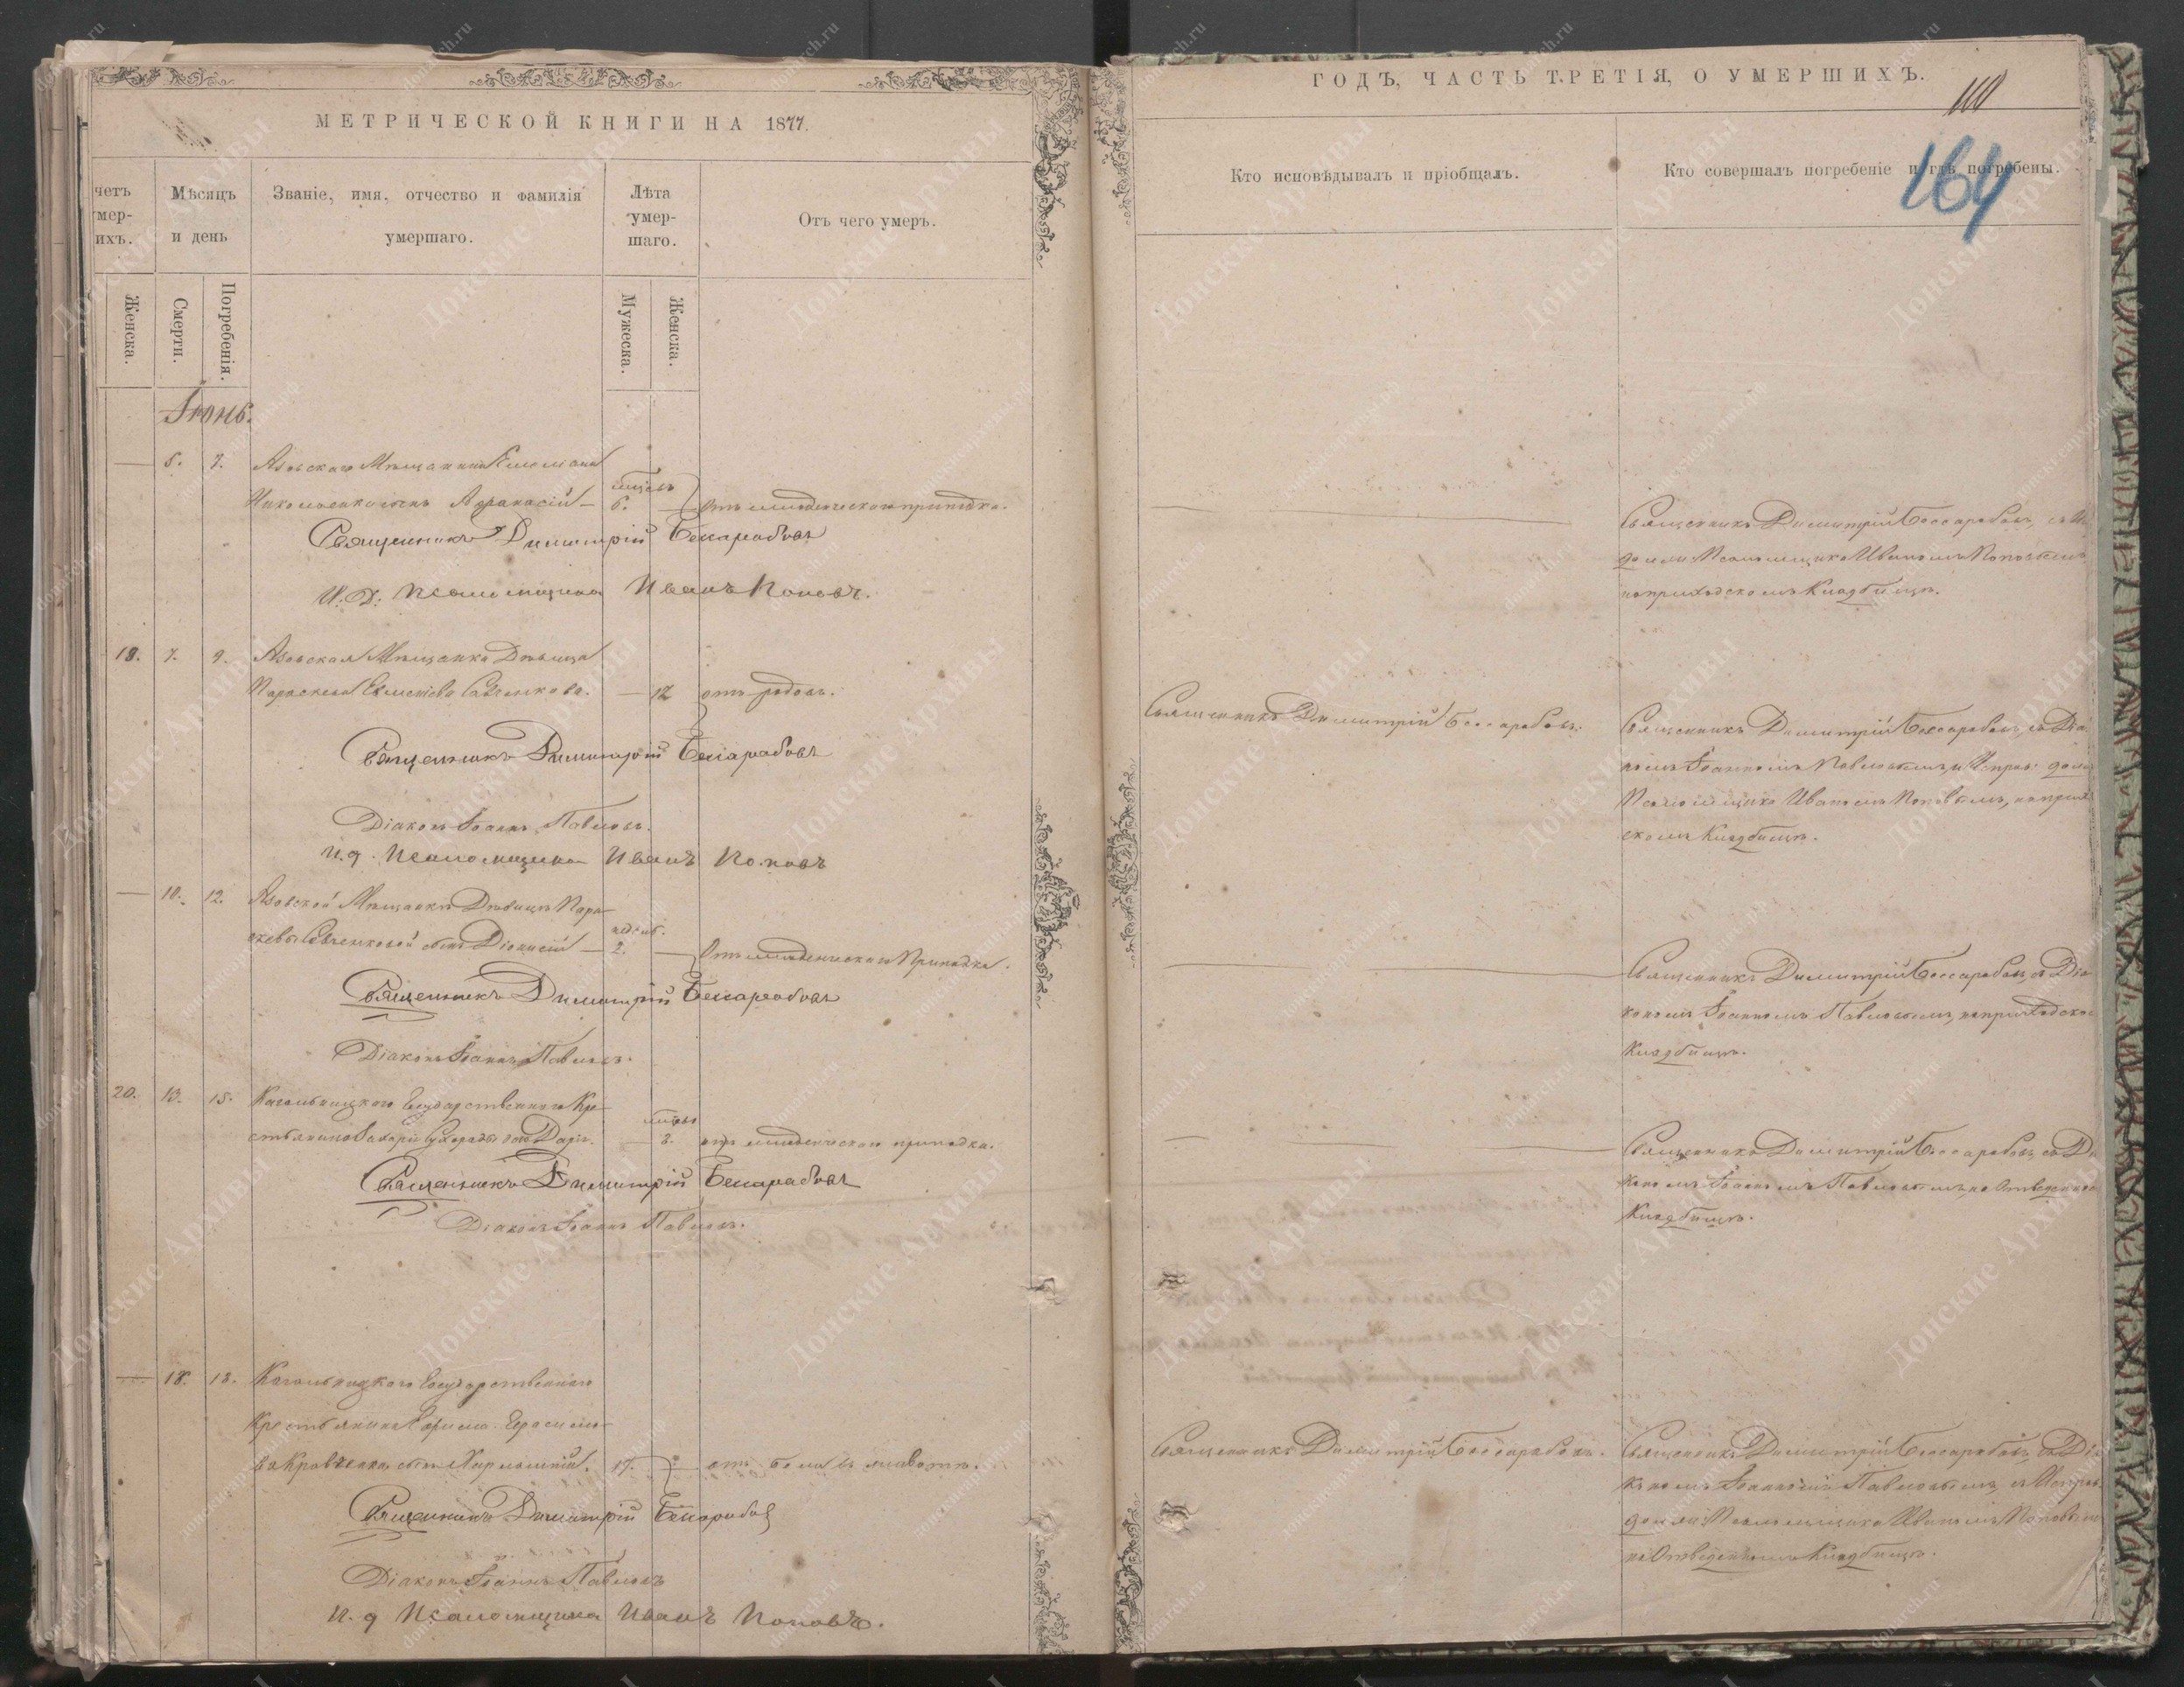 МЕТРИЧЕСКОЙ КНИГИ НА 1877.
четъ
мер-
ихъ.
Мѣсяцъ
и день
Званіе, имя, отчество и фамилія
умершаго.
Лѣта
умер-
шаго.
Отъ чего умеръ.
Женска.
Смерти.
Погребенія.
Мужеска.
Женска.
Іюнь.
— 6. 7. Азовскаго Мѣщанина
сынъ Афанасій — 6. — Отъ младенческаго припадка.
Священникъ Димитрій Бессарабовъ
И. Д. Псаломщика Иванъ Поповъ.
18. 7. 9. Азовская Мѣщанка Дѣвица
Параскева Савченкова. — 17 отъ родовъ.
Священникъ Димитрій Бессарабовъ
Діаконъ Іоаннъ Павловъ.
И. д. Псаломщика Иванъ Поповъ
— 10. 12. Азовской Мѣщанки Дѣвицы Пара-
скевы Савченковой сынъ Діонисій — 2. — Отъ младенческаго Припадка.
Священникъ Димитрій Бессарабовъ
Діаконъ Іоаннъ Павловъ.
20. 13. 15. Кагальницкаго Государственнаго Кре-
стьянина Захарія дочь Дарія. — 3. отъ младенческаго припадка.
Священникъ Димитрій Бессарабовъ
Діаконъ Іоаннъ Павловъ.
— 18. 18. Кагальницкаго Государственнаго
Крестьянина Ефима Герасимо-
ва Кравченка сынъ 17. — отъ боли въ животѣ.
Священникъ Димитрій Бессарабовъ
Діаконъ Іоаннъ Павловъ
И. д Псаломщика Иванъ Поповъ.
ГОДЪ, ЧАСТЬ ТРЕТІЯ, О УМЕРШИХЪ.
164
Кто исповѣдывалъ и пріобщалъ.
Кто совершалъ погребеніе и гдѣ погребены.
Священникъ Димитрій Бессарабовъ, съ
Псаломщика Иваномъ Поповымъ
на приходскомъ Кладбищѣ.
Священникъ Димитрій Бессарабовъ.
Священникъ Димитрій Бессарабовъ, съ Діа
кономъ Іоанномъ Павловымъ, и Исправ: долж
Псаломщика Иваномъ Поповымъ, на приход
скомъ Кладбищѣ.
Священникъ Димитрій Бессарабовъ, съ Діа
кономъ Іоанномъ Павловымъ, на приходско
Кладбищѣ.
Священникъ Димитрій Бессарабовъ, съ Ді
кономъ Іоанномъ Павловымъ, на Отведенном
Кладбищѣ.
Священникъ Димитрій Бессарабовъ.
Священникъ Димитрій Бессарабовъ, съ Діа
кономъ Іоанномъ Павловымъ, и Исправ.
должн Псаломщика Иваномъ Поповымъ
на Отведенномъ Кладбищѣ.